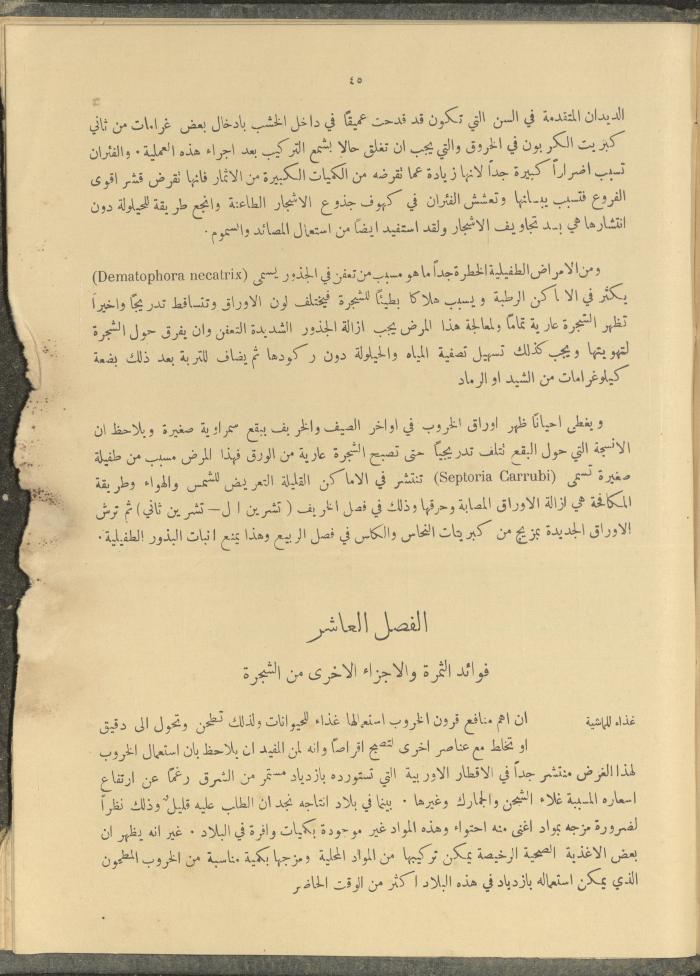 ٤٥
الديدان المتقدمة في السن التي تكون قد قدحت عميقاً في داخل الخشب بادخال بعض غرامات من ثاني
كبريت الكربون في الخروق والتي يجب ان تغلق حالا بشمع التركيب بعد اجراء هذه العملية . والفئران
تسبب اضراراً كبيرة جداً لانها زيادة عما تقرضه من الكميات الكبيرة من الاثمار فانها تقرض قشر اقوى
الفروع فتسبب يبسانها وتعشش الفئران في كهوف جذوع الاشجار الطاعنة وانجع طريقة للحيلولة دون
انتشارها هي بسد تجاويف الاشجار ولقد استفيد ايضاً من استعمال المصائد والسموم .
ومن الامراض الطفيلية الخطرة جداً ما هو مسبب من تعفن في الجذور يسمى (Dematophora necatrix)
يكثر في الاماكن الرطبة ويسبب هلاكا بطيئاً للشجرة فيختلف لون الاوراق وتتساقط تدريجاً واخيراً
تظهر الشجرة عارية تماماً ولمعالجة هذا المرض يجب ازالة الجذور الشديدة التعفن وان يفرق حول الشجرة
لتهويتها ويجب كذلك تسهيل تصفية المياه والحيلولة دون ركودها ثم يضاف للتربة بعد ذلك بضعة
كيلوغرامات من الشيد او الرماد
ويغطى احياناً ظهر اوراق الخروب في اواخر الصيف والخريف ببقع سمراوية صغيرة ويلاحظ ان
الانسجة التي حول البقع تتلف تدريجياً حتى تصبح الشجرة عارية من الورق فهذا المرض مسبب من طفيلة
صغيرة تسمى (Septoria Carrubi) تنتشر في الاماكن القليلة التعريض للشمس والهواء وطريقة
المكافحة هي ازالة الاوراق المصابة وحرقها وذلك في فصل الخريف (تشرين ا ل — تشرين ثاني) ثم ترش
الاوراق الجديدة بمزيج من كبريتات النحاس والكلس في فصل الربيع وهذا يمنع انبات البذور الطفيلية .
الفصل العاشر
فوائد الثمرة والاجزاء الاخرى من الشجرة
غذاء للماشية
ان اهم منافع قرون الخروب استعمالها غذاء للحيوانات ولذلك تطحن وتحول الى دقيق
او تخلط مع عناصر اخرى لتصبح اقراصاً وانه لمن المفيد ان يلاحظ بان استعمال الخروب
لهذا الغرض منتشر جداً في الاقطار الاوربية التي تستورده بازدياد مستمر من الشرق رغماً عن ارتفاع
اسعاره المسببة غلاء الشحن والجمارك وغيرها . بينما في بلاد انتاجه نجد ان الطلب عليه قليل وذلك نظراً
لضرورة مزجه بمواد اغنى منه احتواء وهذه المواد غير موجودة بكميات وافرة في البلاد . غير انه يظهر ان
بعض الاغذية الصحية الرخيصة يمكن تركيبها من المواد المحلية ومزجها بكمية مناسبة من الخروب المطحون
الذي يمكن استعماله بازدياد في هذه البلاد اكثر من الوقت الحاضر